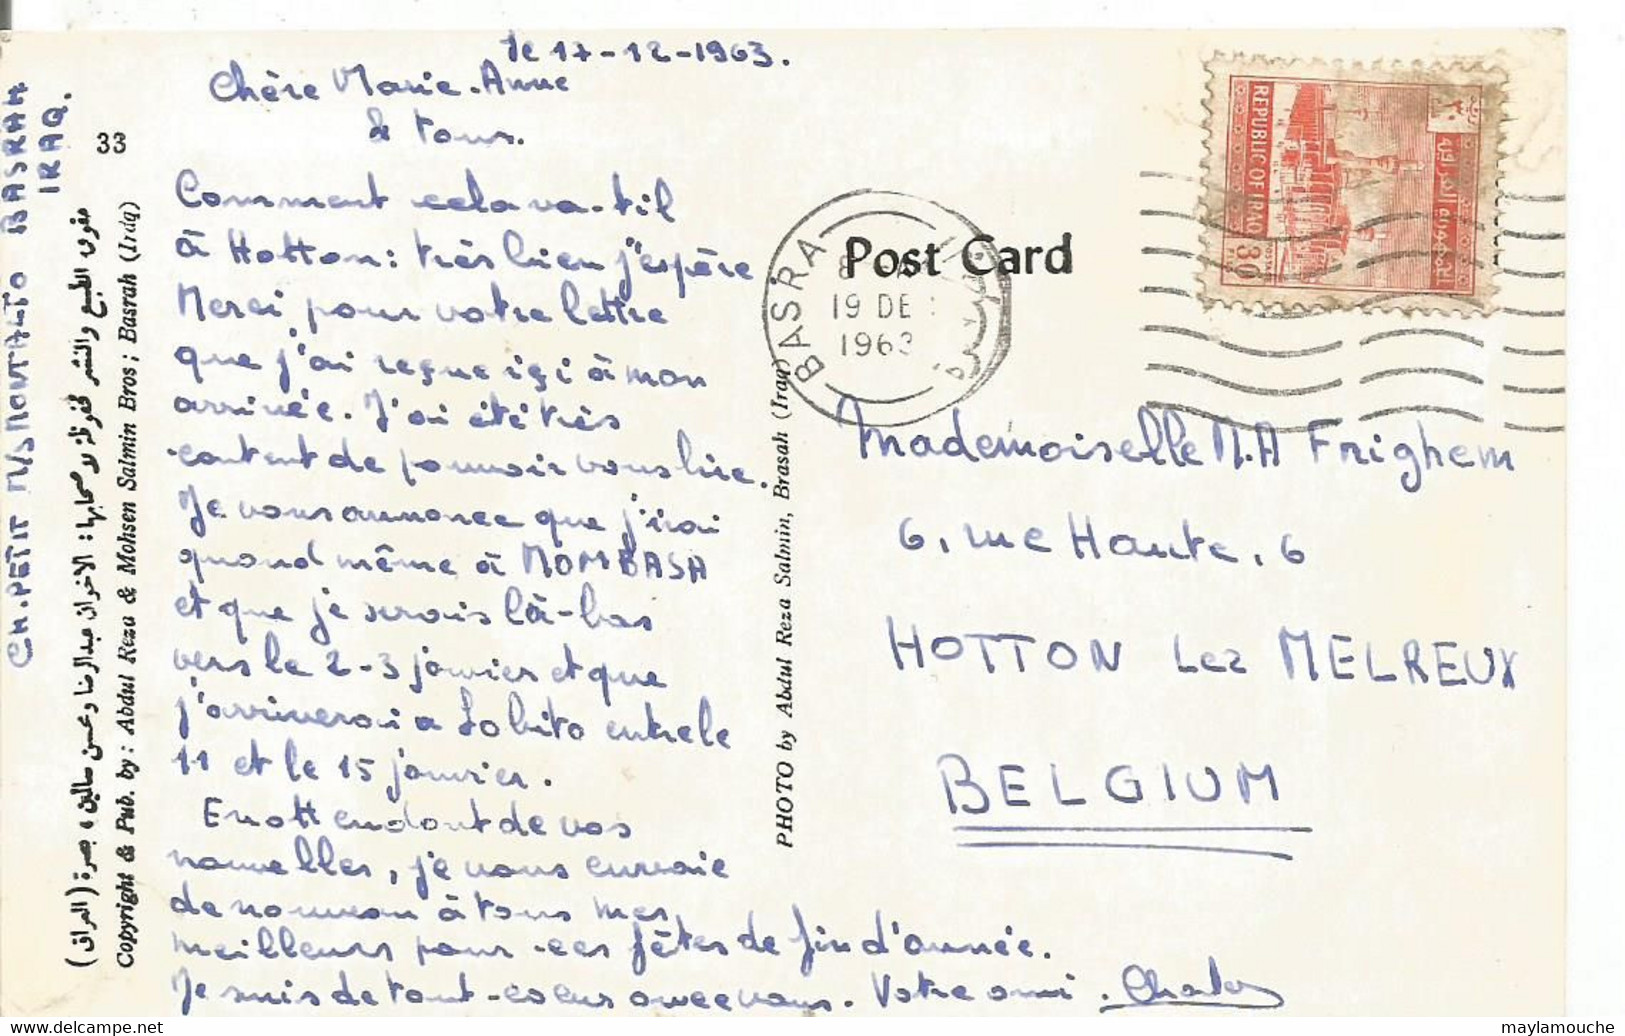 le 17-12-1963.
Chère Marie-Anne
& tous.
Comment cela va-t-il
à Hotton : très bien j'espère
Merci pour votre lettre
que j'ai reçue içi à mon
arrivée. J'ai été très
content de pouvoir vous lire.
Je vous annonce que j'irai
quand même à MOMBASA
et que je serais là-bas
vers le 2-3 janvier et que
j'arriverai a Lobito entre le
11 et le 15 janvier.
En attendant de vos
nouvelles, je vous envoie
de nouveau à tous mes
meilleurs pour ces fêtes de fin d'année.
Je suis de tout coeur avec vous. Votre ami. Charles
CH. PETIT M/S MONTALTO BASRAH
IRAQ.
33
حقوق الطبع والنشر محفوظة لاصحابها : الاخوان عبدالرضا ومحسن سالمين ، بصرة : (العراق)
Copyright & Pub. by : Abdul Reza & Mohsen Salmin Bros ; Basrah (Iraq)
PHOTO by Abdul Reza Salmin, Brasah (Iraq)
Post Card
BASRA
19 DE
1963
REPUBLIC OF IRAQ
30
الجمهورية العراقية
Mademoiselle M.A Frighem
6, rue Haute, 6
HOTTON Lez MELREUX
BELGIUM
maylamouche